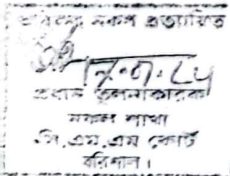 অবিকল নকল প্রত্যায়িত
প্রধান তুলনাকারক
নকল শাখা
সি.এম.এম কোর্ট
বরিশাল।